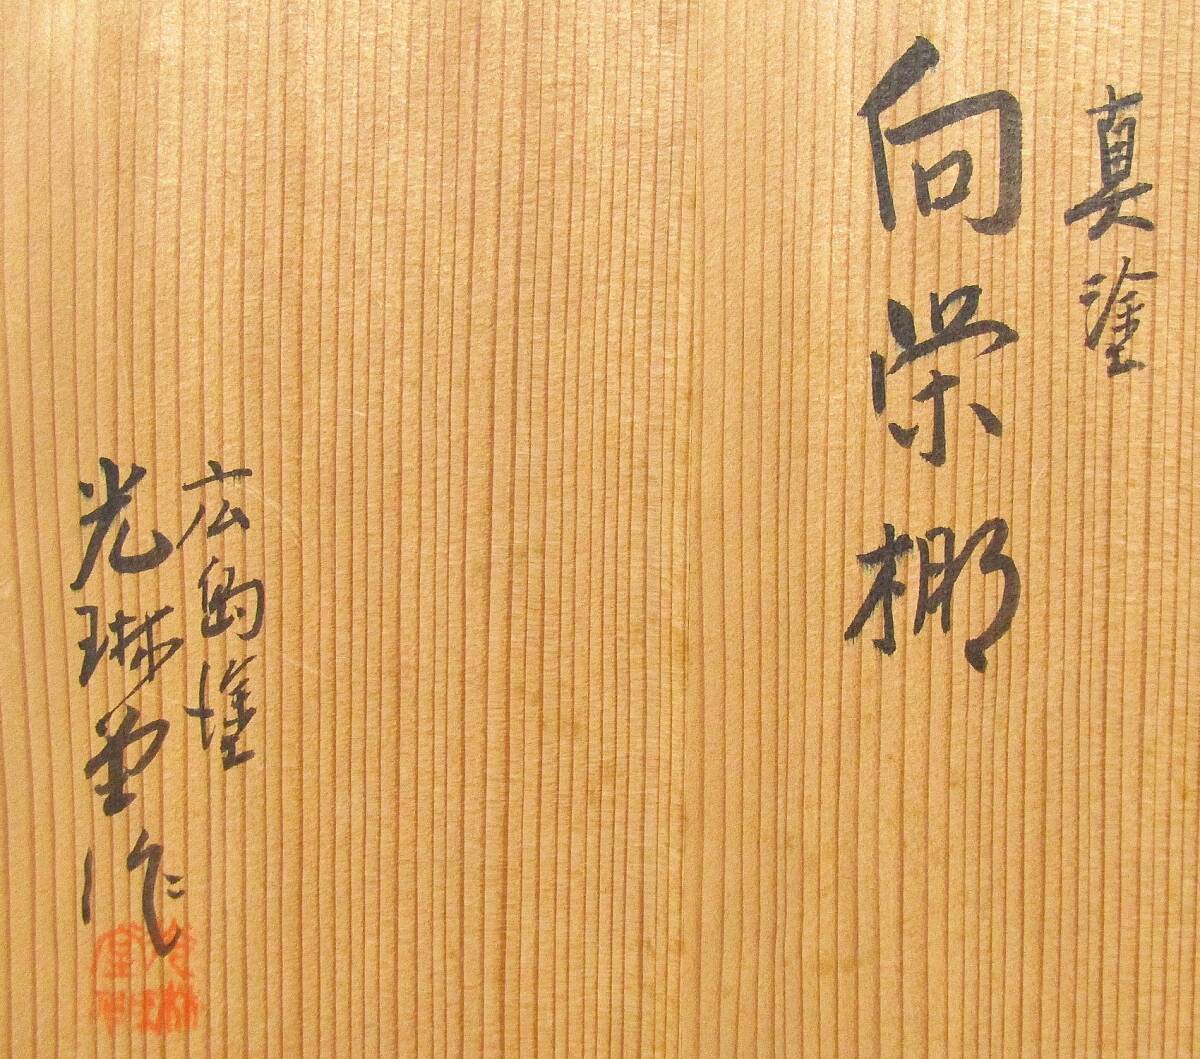 真塗
向栄棚
広島塗
光琳堂作